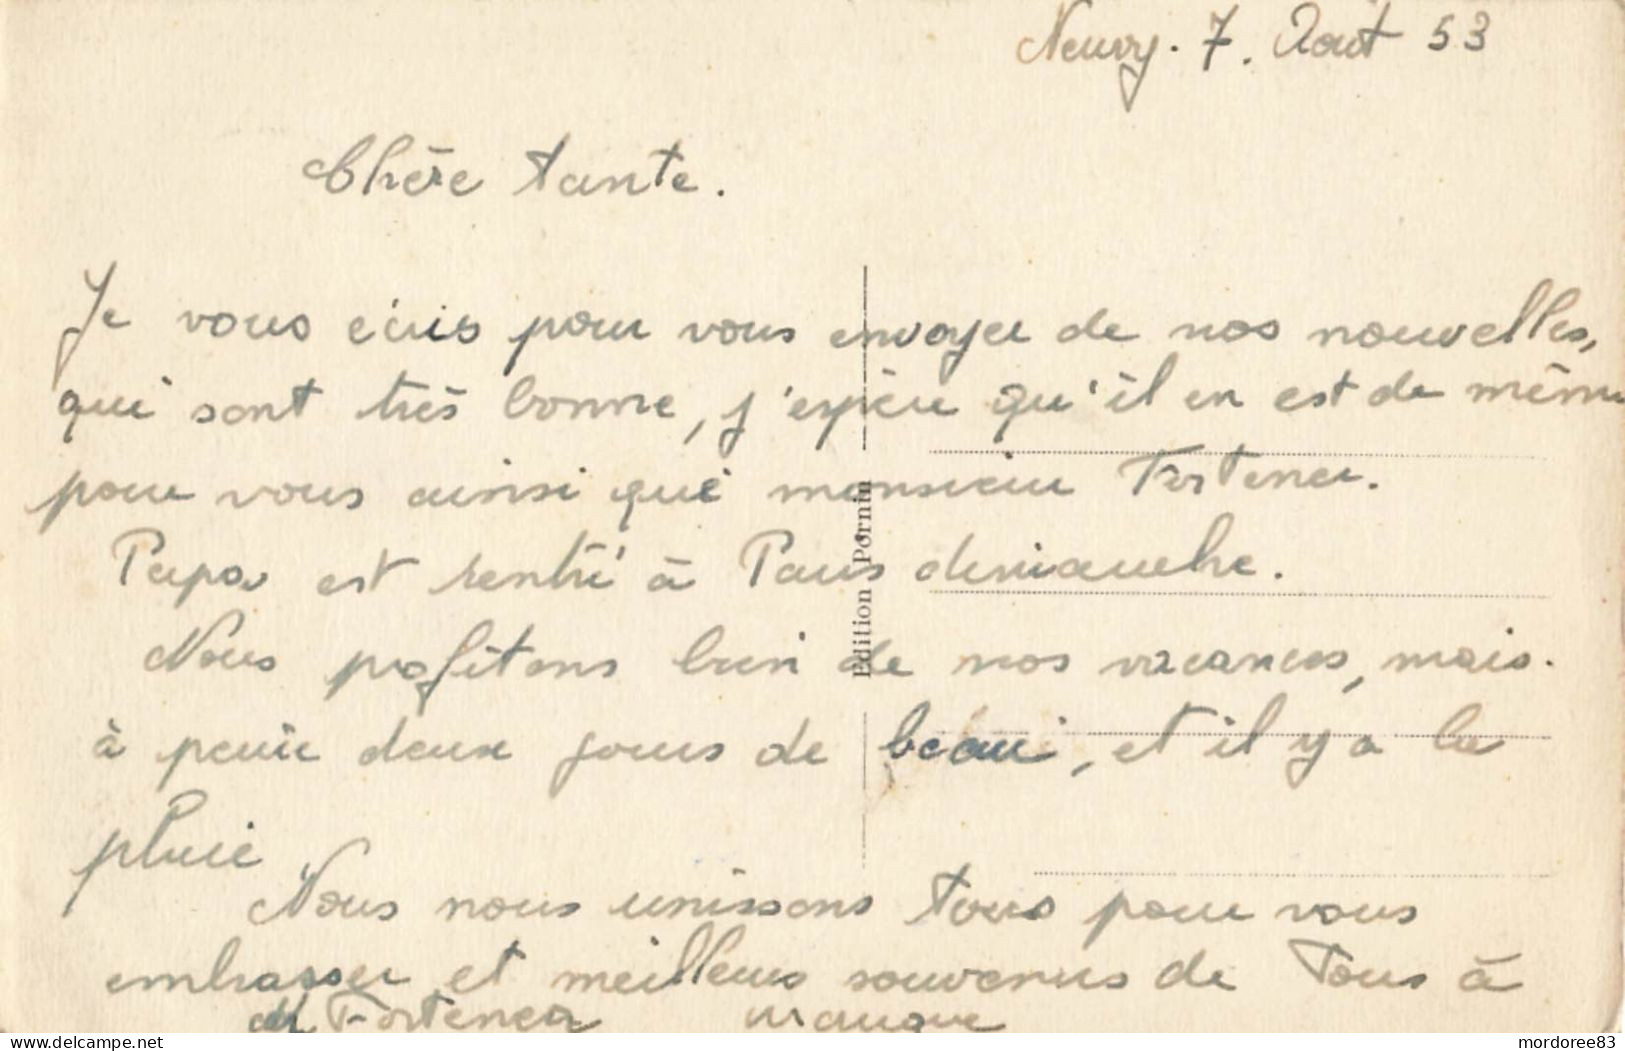 Neuvy. 7. Août 53
Chère tante.
Je vous écris pour vous envoyer de nos nouvelles,
qui sont très bonne, j'espère qu'il en est de même
pour vous ainsi que monsieur Fortener.
Papa est rentré à Paris dimanche.
Nous profitons bien de nos vacances, mais.
à peine deux jours de beau, et il y a la
pluie
Nous nous unissons tous pour vous
embrasser et meilleurs souvenirs de Tous à
Mr Fortener
Edition Pornin
delcampe.net
mordoree83